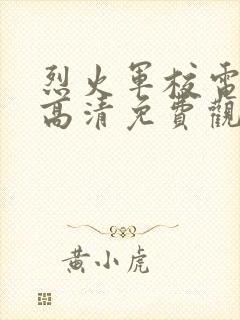 烈火軍校電
高清免費觀
黃小虎